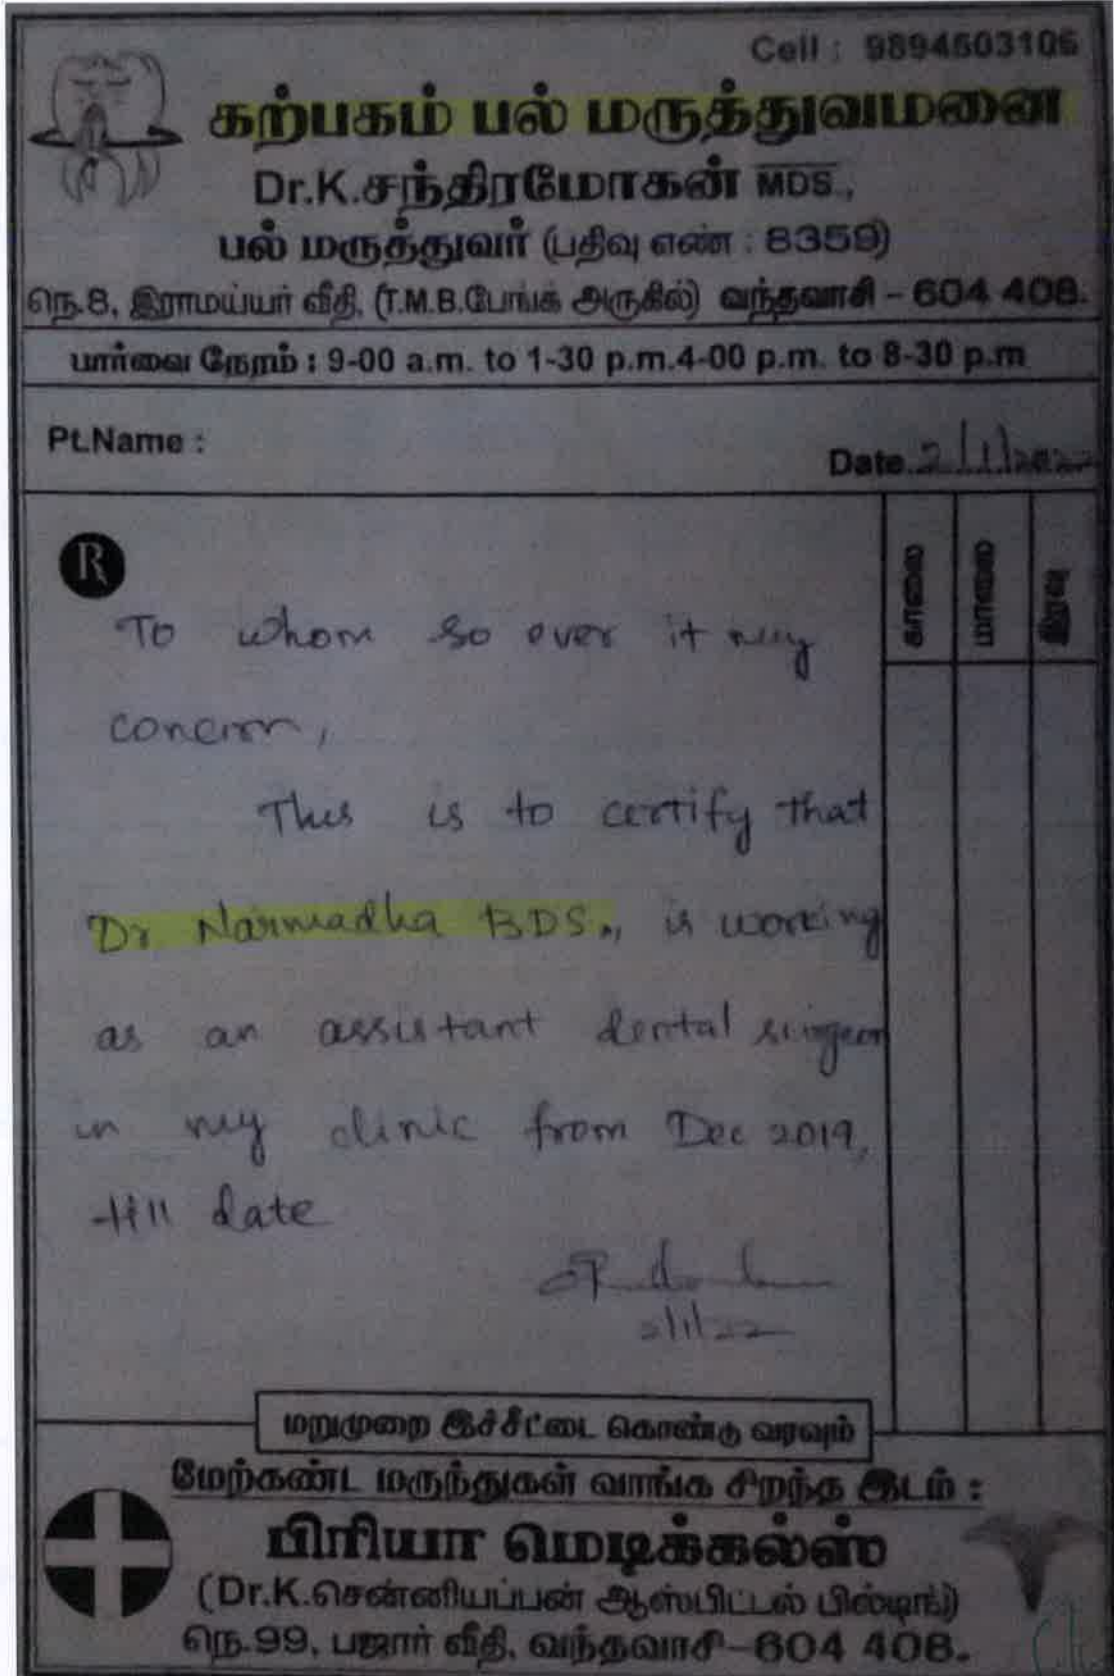 Cell : 9894603106
கற்பகம் பல் மருத்துவமனை
Dr.K.சந்திரமோகன் MDS.,
பல் மருத்துவர் (பதிவு எண் : 8359)
நெ.8, இராமய்யர் வீதி, (T.M.B.பேங்க் அருகில்) வந்தவாசி – 604 408.
பார்வை நேரம் : 9-00 a.m. to 1-30 p.m.4-00 p.m. to 8-30 p.m
Pt.Name :
Date 2/1/2022
R
காலை மாலை இரவு
To whom so ever it may
concern,
This is to certify that
Dr Narmadha BDS., is working
as an assistant dental surgeon
in my clinic from Dec 2019,
till date
2/1/22
மறுமுறை இச்சீட்டை கொண்டு வரவும்
மேற்கண்ட மருந்துகள் வாங்க சிறந்த இடம் :
பிரியா மெடிக்கல்ஸ்
(Dr.K.சென்னியப்பன் ஆஸ்பிட்டல் பில்டிங்)
நெ.99, பஜார் வீதி, வந்தவாசி–604 408.